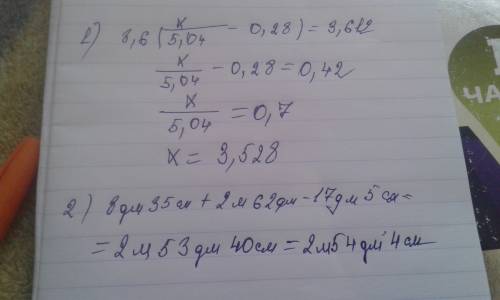 1) 8,6(x/5,04 - 0,28) = 3,612
x/5,04 - 0,28 = 0,42
x/5,04 = 0,7
x = 3,528
2) 8дм 35см + 2м 62дм - 17дм 5см =
= 2м 53дм 40см = 2м 54дм 4см
ЧА